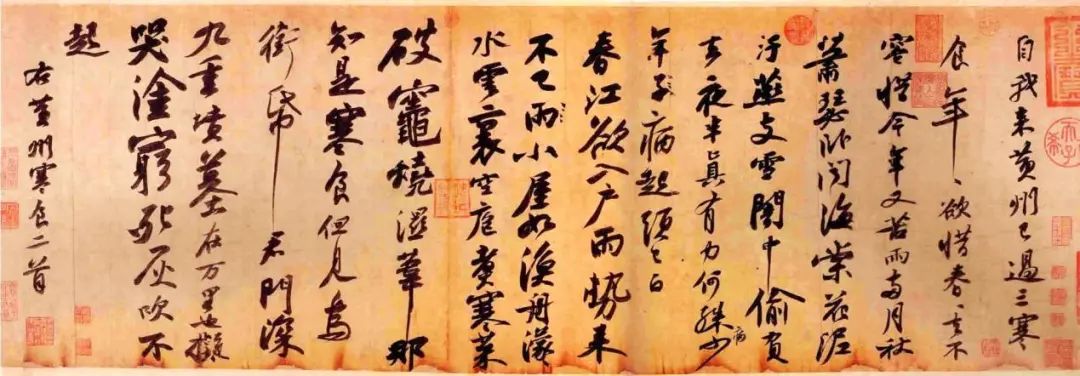 自我来黄州已過三寒
食年〻欲惜春〻去不
容惜今年又苦雨兩月秋
蕭瑟卧聞海棠花泥
汙燕支雪闇中偷負
去夜半真有力何殊少
病
年子病起頭已白
春江欲入户雨勢来
不已雨小屋如漁舟濛〻
水雲裏空庖煮寒菜
破竈燒濕葦那
知是寒食但見烏
銜帋君門深
九重墳墓在万里也擬
哭塗窮死灰吹不
起
右黄州寒食二首